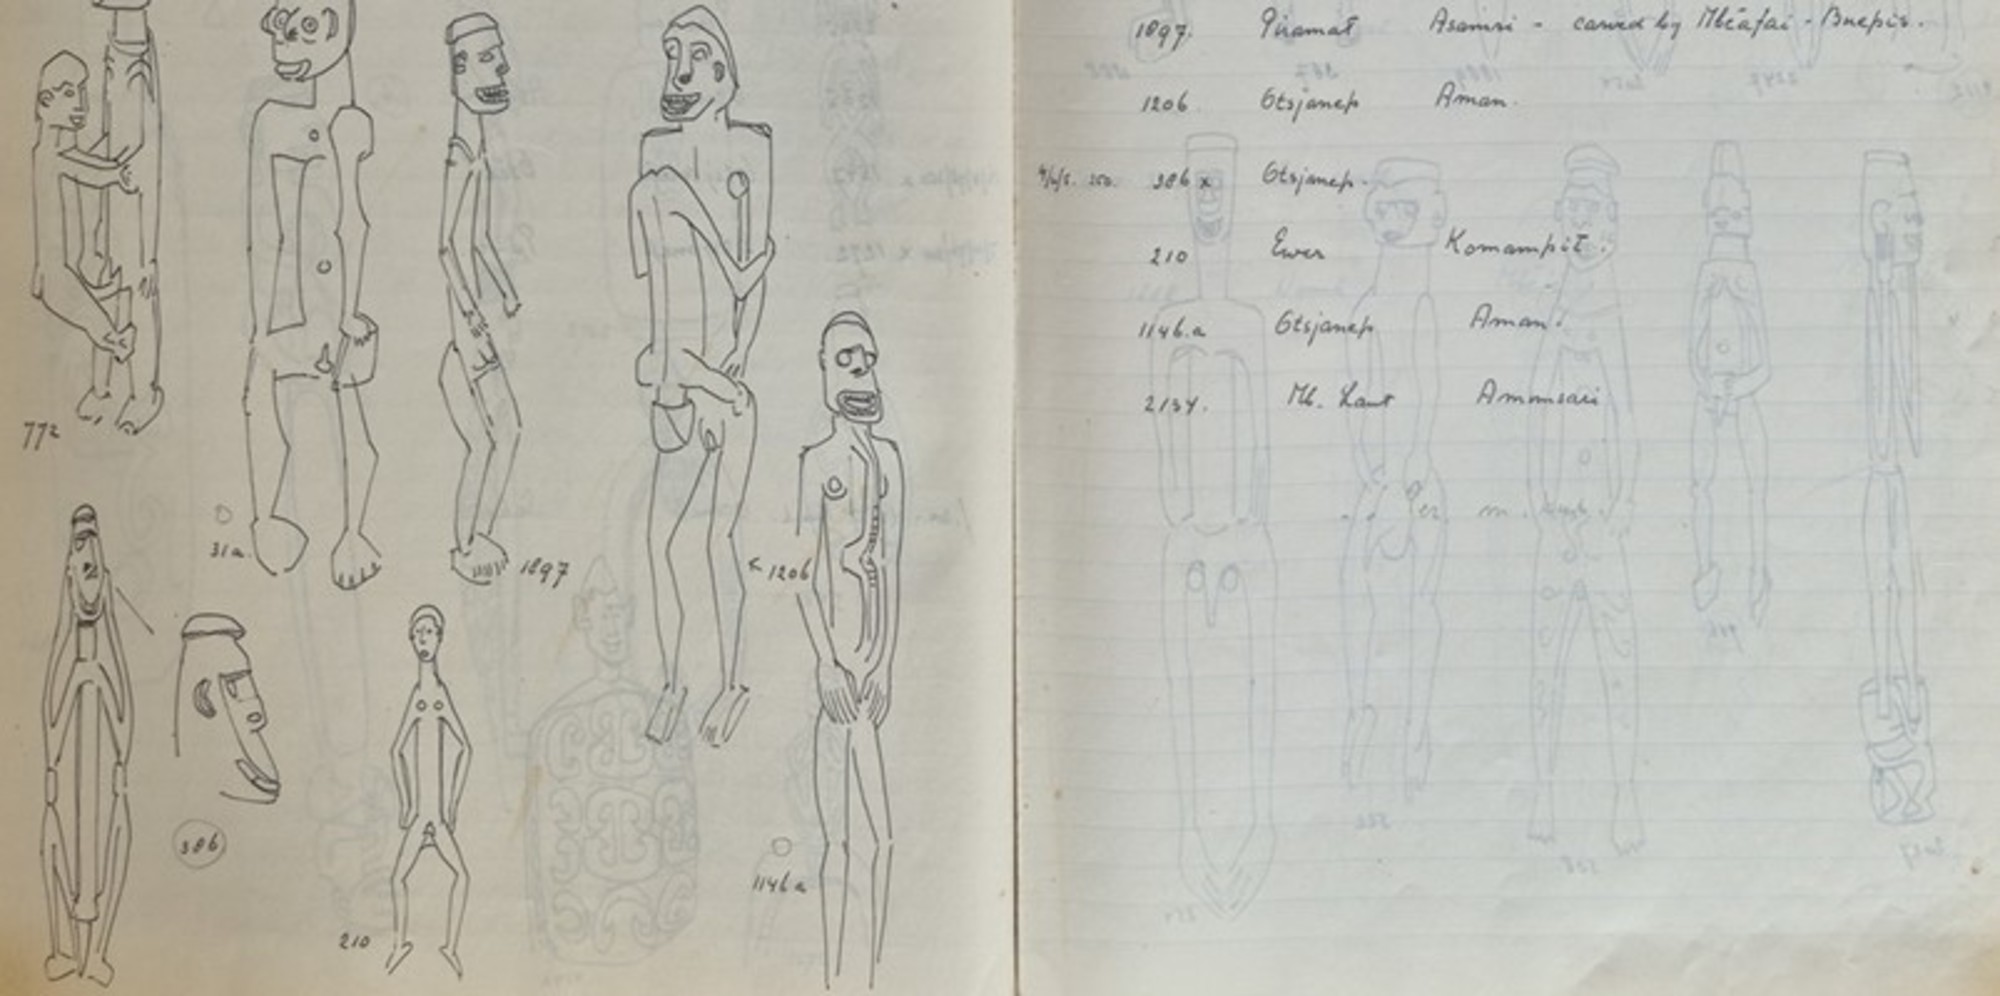 772
31a
1897
< 1206
386
210
1146a
1897. Piramat Asamsi - carved by Mbéafai - Buepis.
1206 Otsjanep Aman.
250. 386 x Otsjanep.
210 Ewer Komampit.
1146.a Otsjanep Aman.
2134. Mb. Laut Amomsaii